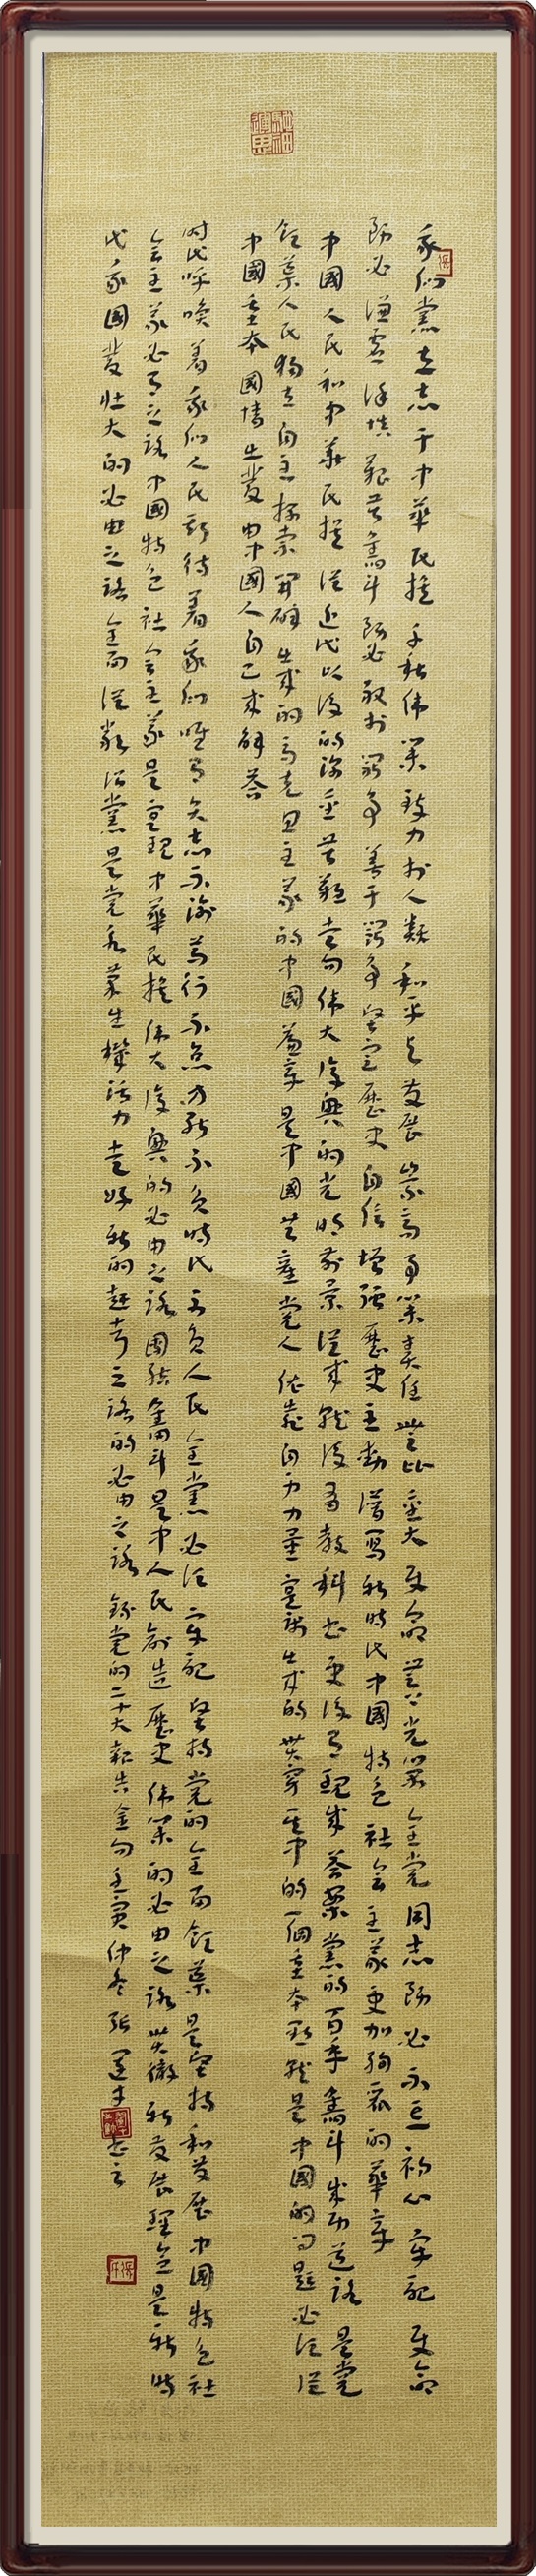 我们党立志于中华民族千秋伟业致力于人类和平与发展崇高事业责任无比重大使命无上光荣全党同志务必不忘初心牢记使命
务必谦虚谨慎艰苦奋斗务必敢于斗争善于斗争坚定历史自信增强历史主动谱写新时代中国特色社会主义更加绚丽的华章
中国人民和中华民族从近代以后的深重苦难走向伟大复兴的光明前景从来就没有教科书更没有现成答案党的百年奋斗成功道路是党
领导人民独立自主探索开辟出来的马克思主义的中国篇章是中国共产党人依靠自身力量实践出来的贯穿其中的一个基本点就是中国的问题必须从
中国基本国情出发由中国人自己来解答
时代呼唤着我们人民期待着我们唯有矢志不渝笃行不怠方能不负时代不负人民全党必须牢记坚持党的全面领导是坚持和发展中国特色社
会主义必由之路中国特色社会主义是实现中华民族伟大复兴的必由之路团结奋斗是中人民创造历史伟业的必由之路贯彻新发展理念是新时
代我国发壮大的必由之路全面从严治党是党永葆生机活力走好新的赶考之路的必由之路录党的二十大报告金句壬寅仲冬张运才书之